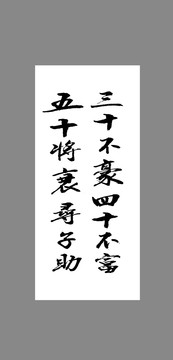 三十不豪四十不富
五十將衰尋子助